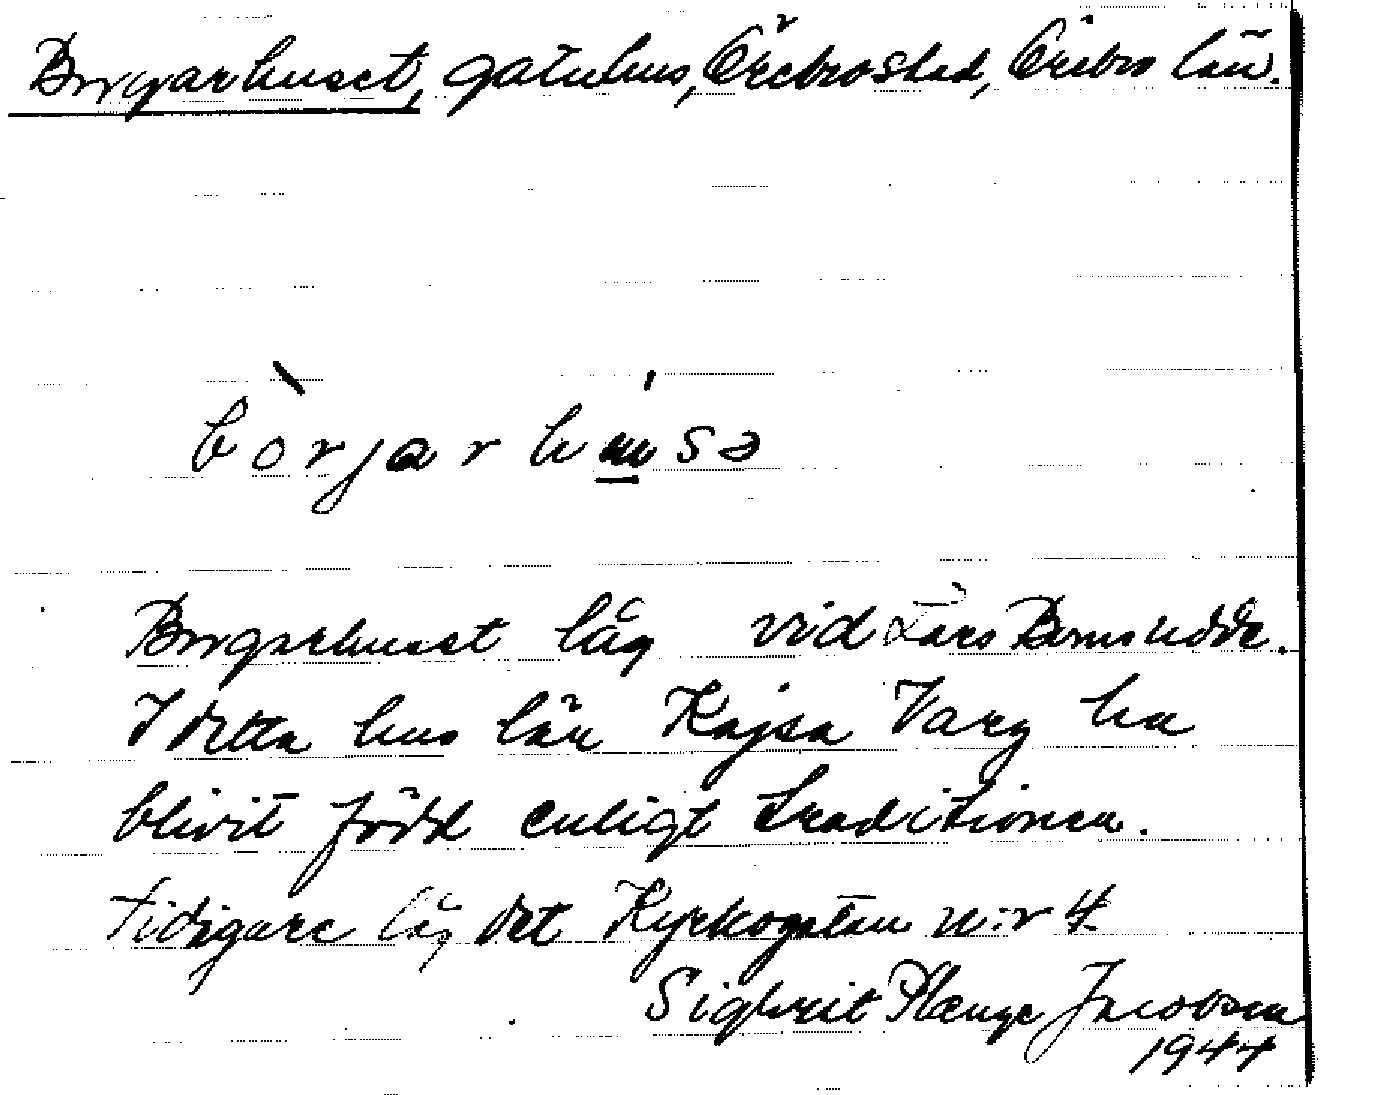 Borgarhuset, gatuhus, Örebro stad, Örebro län.
bòrjarhúsə
Borgarhuset låg vid Lars Bernsudde.
I detta hus lär Kajsa Varg ha
blivit född enligt traditionen.
Tidigare låg det Kyrkogatan n:r 4.
Sigbrit Plænge Jacobson
1944